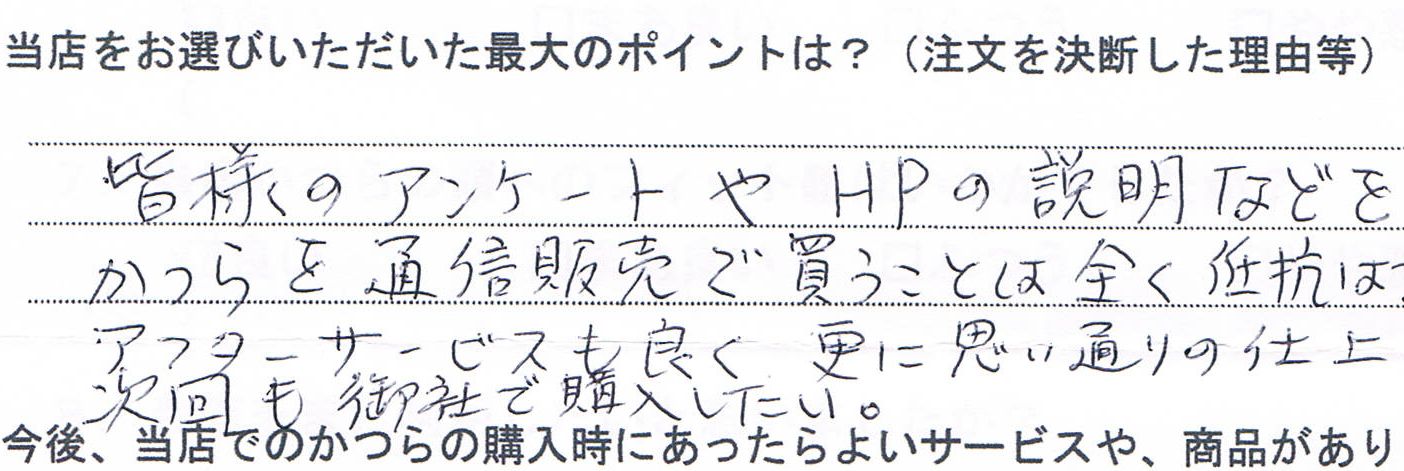 当店をお選びいただいた最大のポイントは？（注文を決断した理由等）
皆様のアンケートやHPの説明などを
かつらを通信販売で買うことは全く抵抗は
アフターサービスも良く更に思い通りの仕上
次回も御社で購入したい。
今後、当店でのかつらの購入時にあったらよいサービスや、商品があり